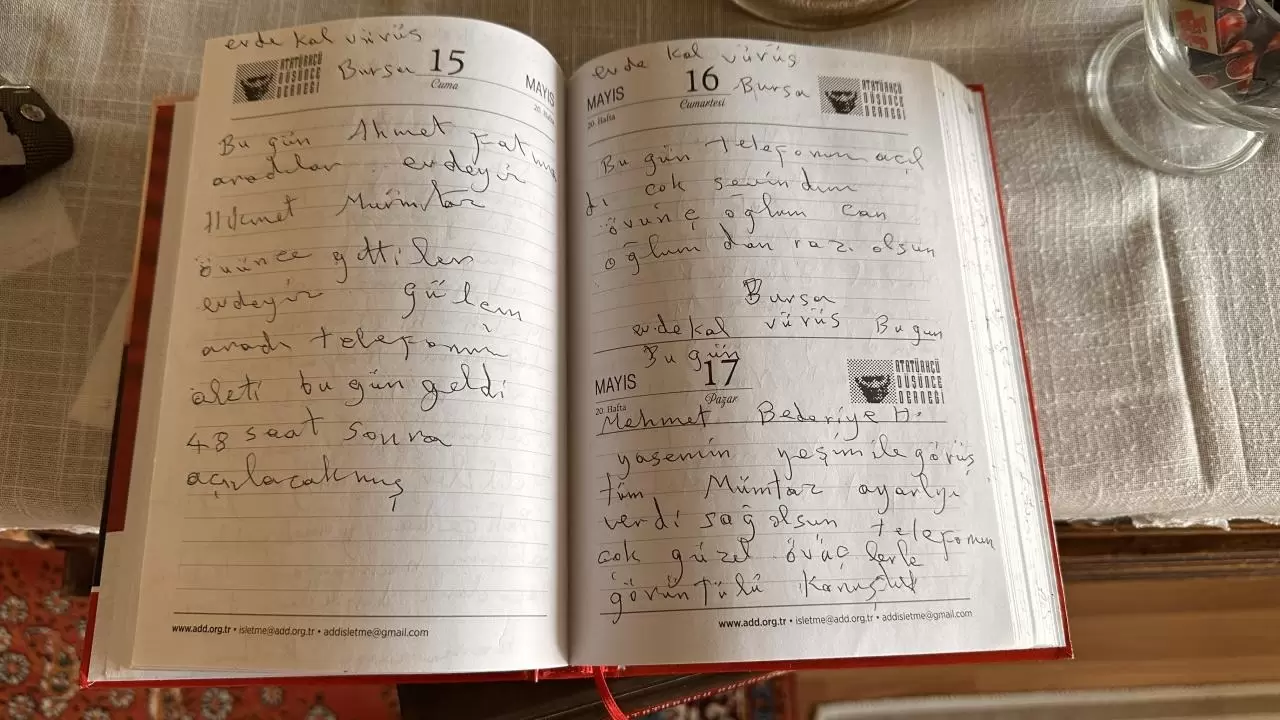 evde kal vürüs
ATATÜRKÇÜ
DÜŞÜNCE
DERNEĞİ
Bursa 15 MAYIS
Cuma
20. Hafta
Bu gün Ahmet Fatma
aradılar evdeyiz
Hikmet Mümtaz
gittiler
evdeyiz gülem
aradı telefonun
aleti bu gün geldi
48 saat sonra
açılacakmış
www.add.org.tr • isletme@add.org.tr • addisletme@gmail.com
evde kal vürüs
MAYIS 16 Bursa
Cumartesi
20. Hafta
ATATÜRKÇÜ
DÜŞÜNCE
DERNEĞİ
Bu gün telefonum açıl
dı cok sevindim
övünç oğlum can
oğlum dan razı olsun
Bursa
evde kal vürüs Bu gun
Bu gün
MAYIS 17
Pazar
20. Hafta
ATATÜRKÇÜ
DÜŞÜNCE
DERNEĞİ
Mehmet Bederiye H.
yasemin yeşim ile görüş
tüm Mümtaz ayarlyı
verdi sağ olsun telefonun
cok güzel övüç lerle
görüntülü Konuştuk
www.add.org.tr • isletme@add.org.tr • addisletme@gmail.com